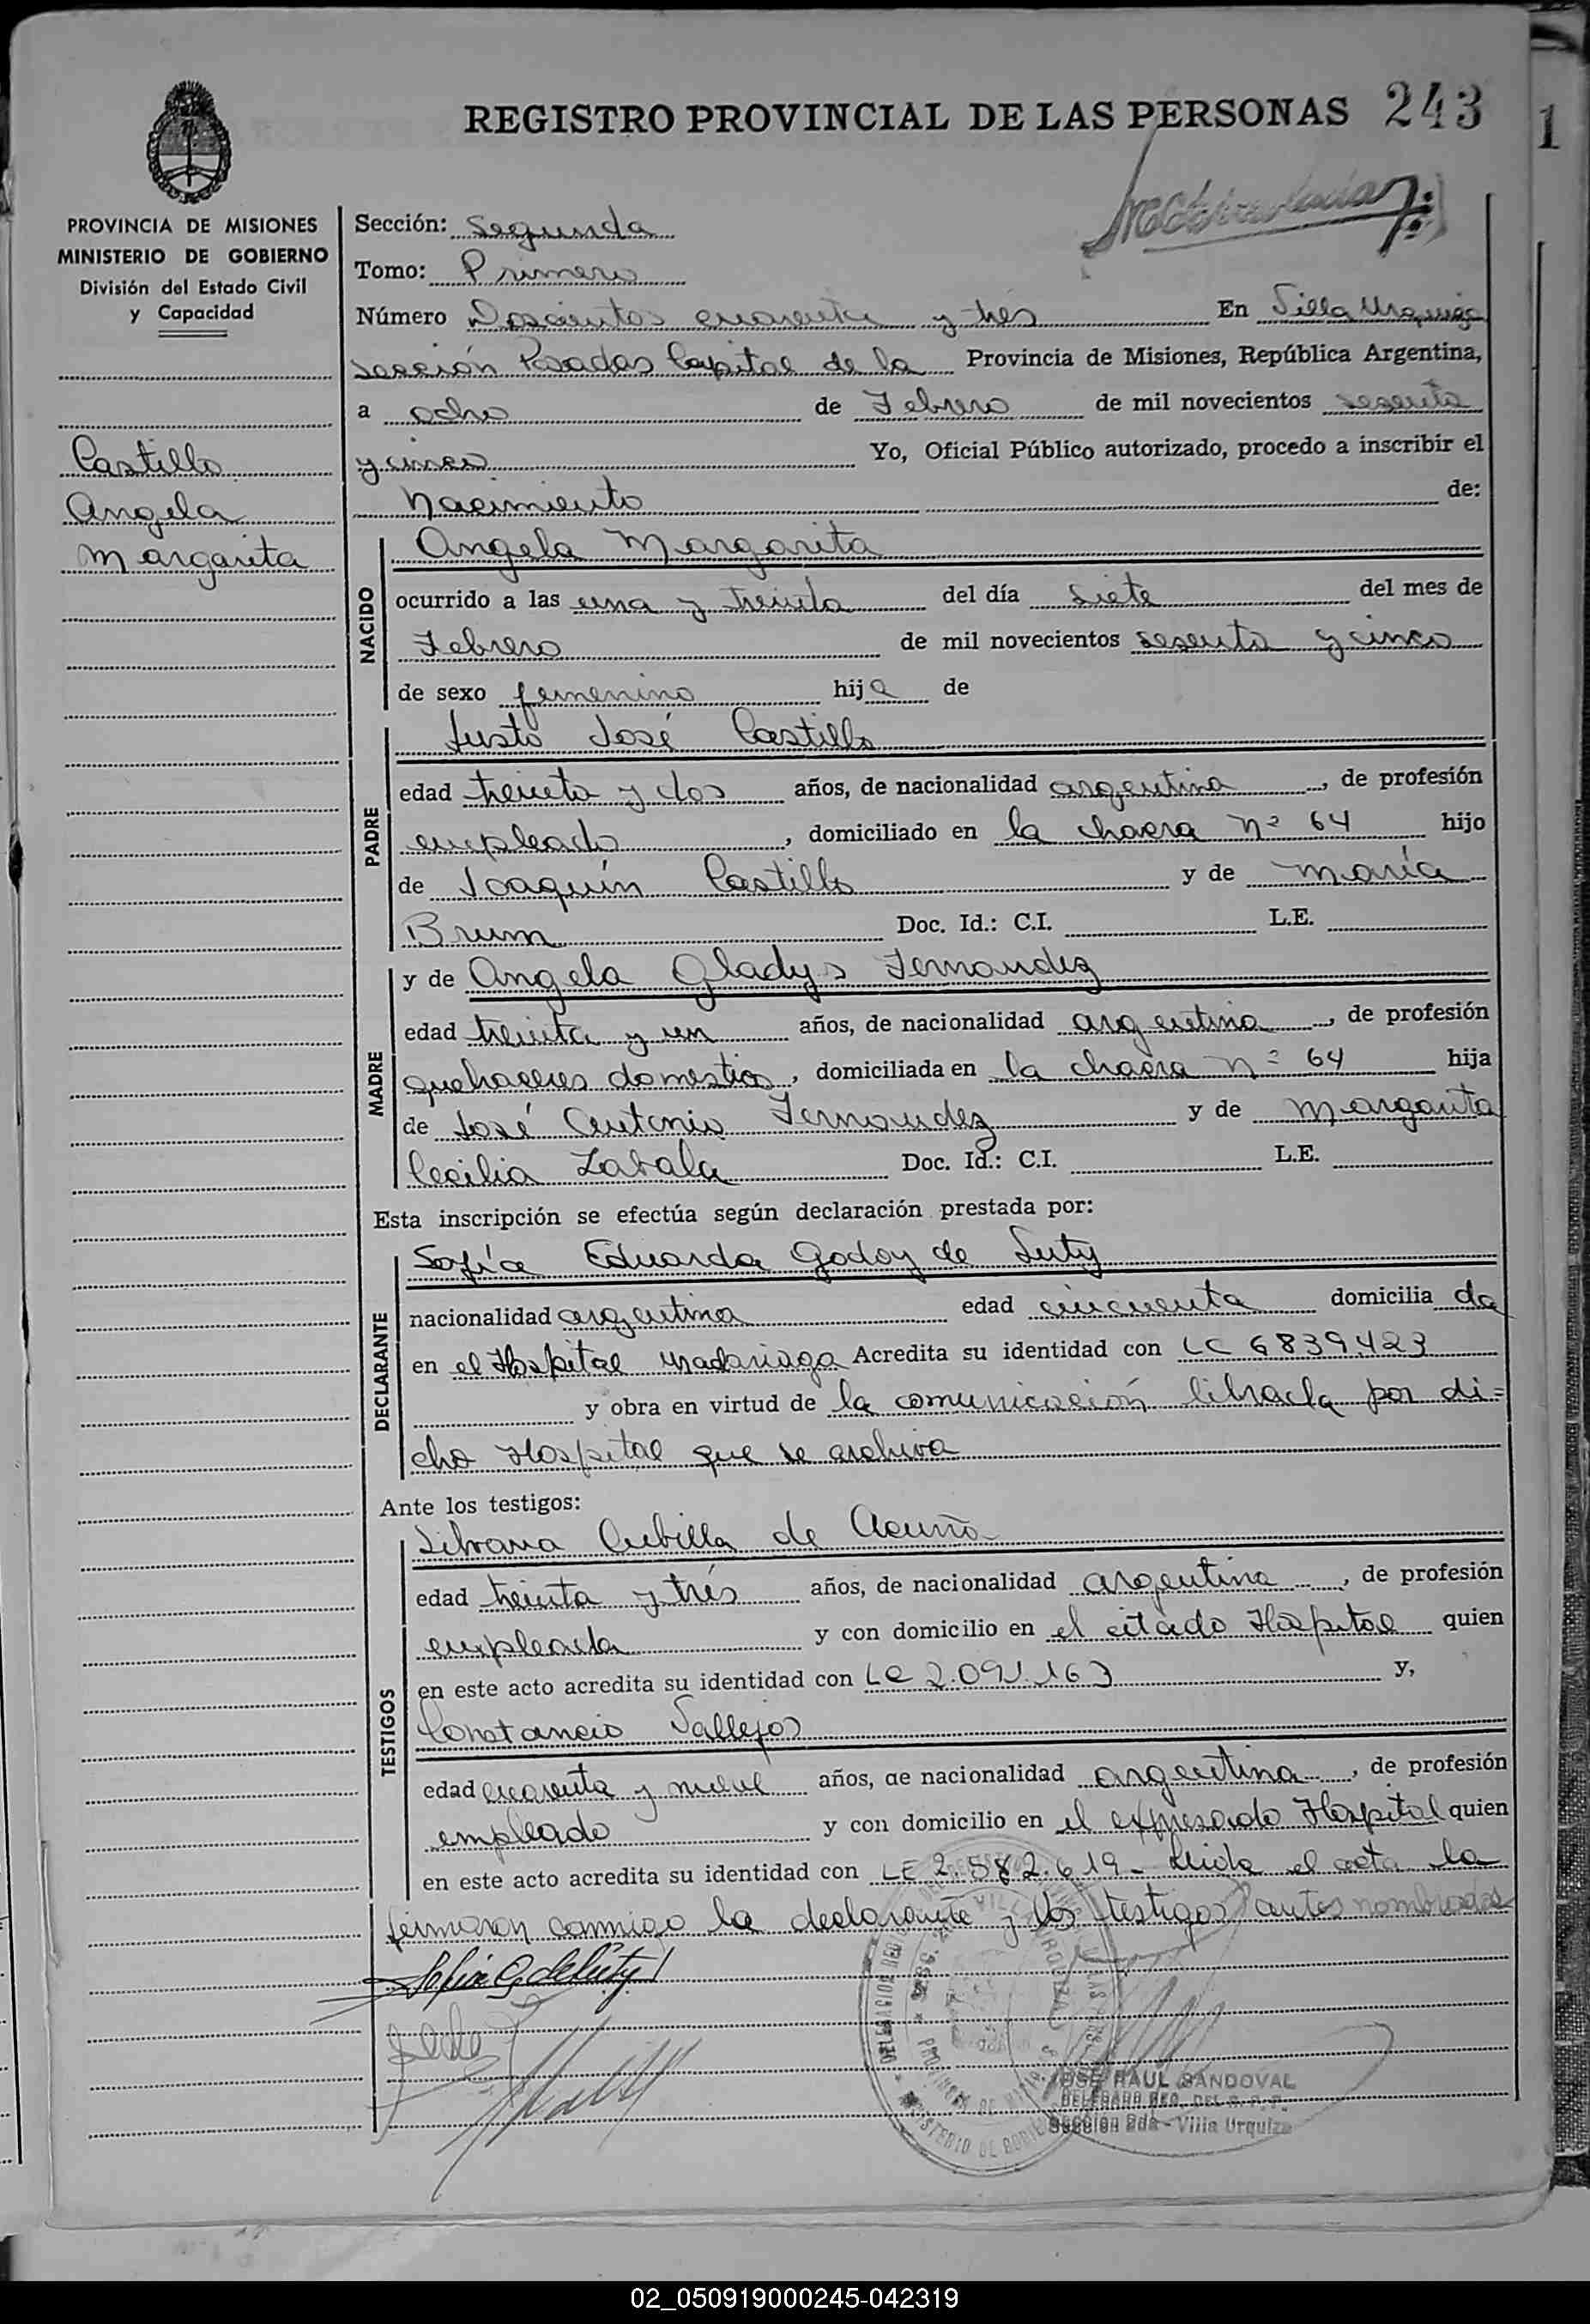 REGISTRO PROVINCIAL DE LAS PERSONAS 243
1
PROVINCIA DE MISIONES
MINISTERIO DE GOBIERNO
División del Estado Civil
y Capacidad
Castillo
Angela
Margarita
Sección: Segunda
Tomo: Primero
Número Doscientos cuarenta y tres En Villa Urquiza
sección Posadas Capital de la Provincia de Misiones, República Argentina,
a ocho de Febrero de mil novecientos sesenta
y cinco Yo, Oficial Público autorizado, procedo a inscribir el
Nacimiento de:
NACIDO
Angela Margarita
ocurrido a las una y treinta del día siete del mes de
Febrero de mil novecientos sesenta y cinco
de sexo femenino hija de
PADRE
Justo José Castillo
edad treinta y dos años, de nacionalidad argentina, de profesión
empleado, domiciliado en la chacra nº 64 hijo
de Joaquín Castillo y de María
Brum Doc. Id.: C.I. L.E.
MADRE
y de Angela Gladys Fernandez
edad treinta y un años, de nacionalidad argentina, de profesión
quehaceres domesticos, domiciliada en la chacra nº 64 hija
de José Antonio Fernandez y de Margarita
Cecilia Zabala Doc. Id.: C.I. L.E.
Esta inscripción se efectúa según declaración prestada por:
DECLARANTE
Sofía Eduarda Godoy de Luty
nacionalidad argentina edad cincuenta domicilia da
en el Hospital Madariaga Acredita su identidad con LC 6839423
y obra en virtud de la comunicación librada por di=
cho Hospital que se archiva
Ante los testigos:
TESTIGOS
Librana Cubilla de Acuña
edad treinta y trés años, de nacionalidad argentina, de profesión
empleada y con domicilio en el citado Hospital quien
en este acto acredita su identidad con LC 2.091.163 y,
Constancio Vallejos
edad cuarenta y nueve años, de nacionalidad argentina, de profesión
empleado y con domicilio en el expresado Hospital quien
en este acto acredita su identidad con LE 2.582.619- Leida el acta la
firmaron conmigo la declarante y los testigos antes nombrados
Sofia G de Luty
JOSE RAUL SANDOVAL
Sección 2da - Villa Urquiza
02_050919000245-042319